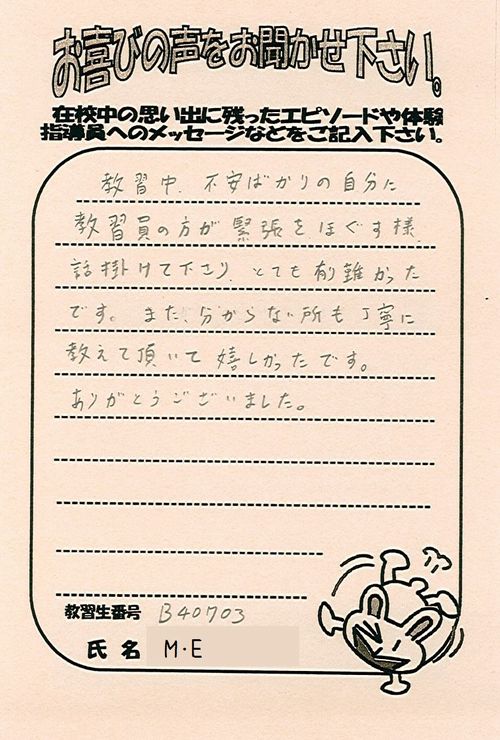 お喜びの声をお聞かせ下さい。
在校中の思い出に残ったエピソードや体験
指導員へのメッセージなどをご記入下さい。
教習中、不安ばかりの自分に
教習員の方が緊張をほぐす様、
話掛けて下さり、とても有難かった
です。また、分からない所も丁寧に
教えて頂いて嬉しかったです。
ありがとうございました。
教習生番号 B40703
氏名 M・E